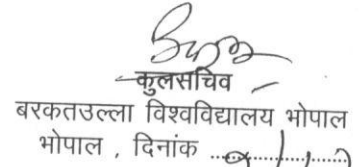 कुलसचिव
बरकतउल्ला विश्वविद्यालय भोपाल
भोपाल , दिनांक